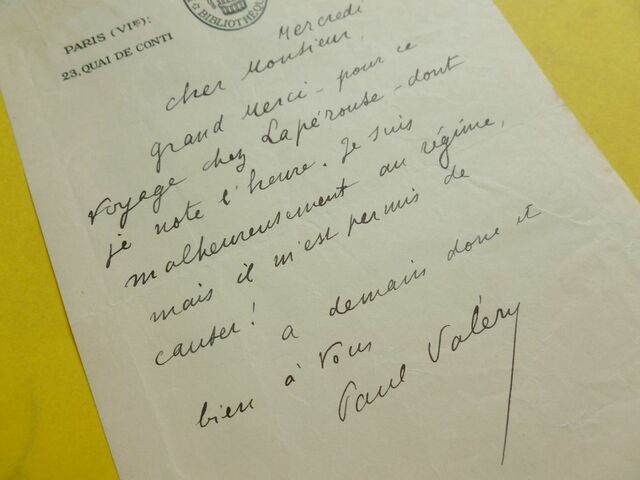 BIBLIOTHÈQUE
PARIS (VIE):
23, QUAI DE CONTI
Mercredi
cher Monsieur,
grand merci - pour ce
voyage chez Lapérouse - dont
je note l'heure. Je suis
malheureusement au régime,
mais il m'est permis de
causer!
a demain donc et
bien à vous
Paul Valéry